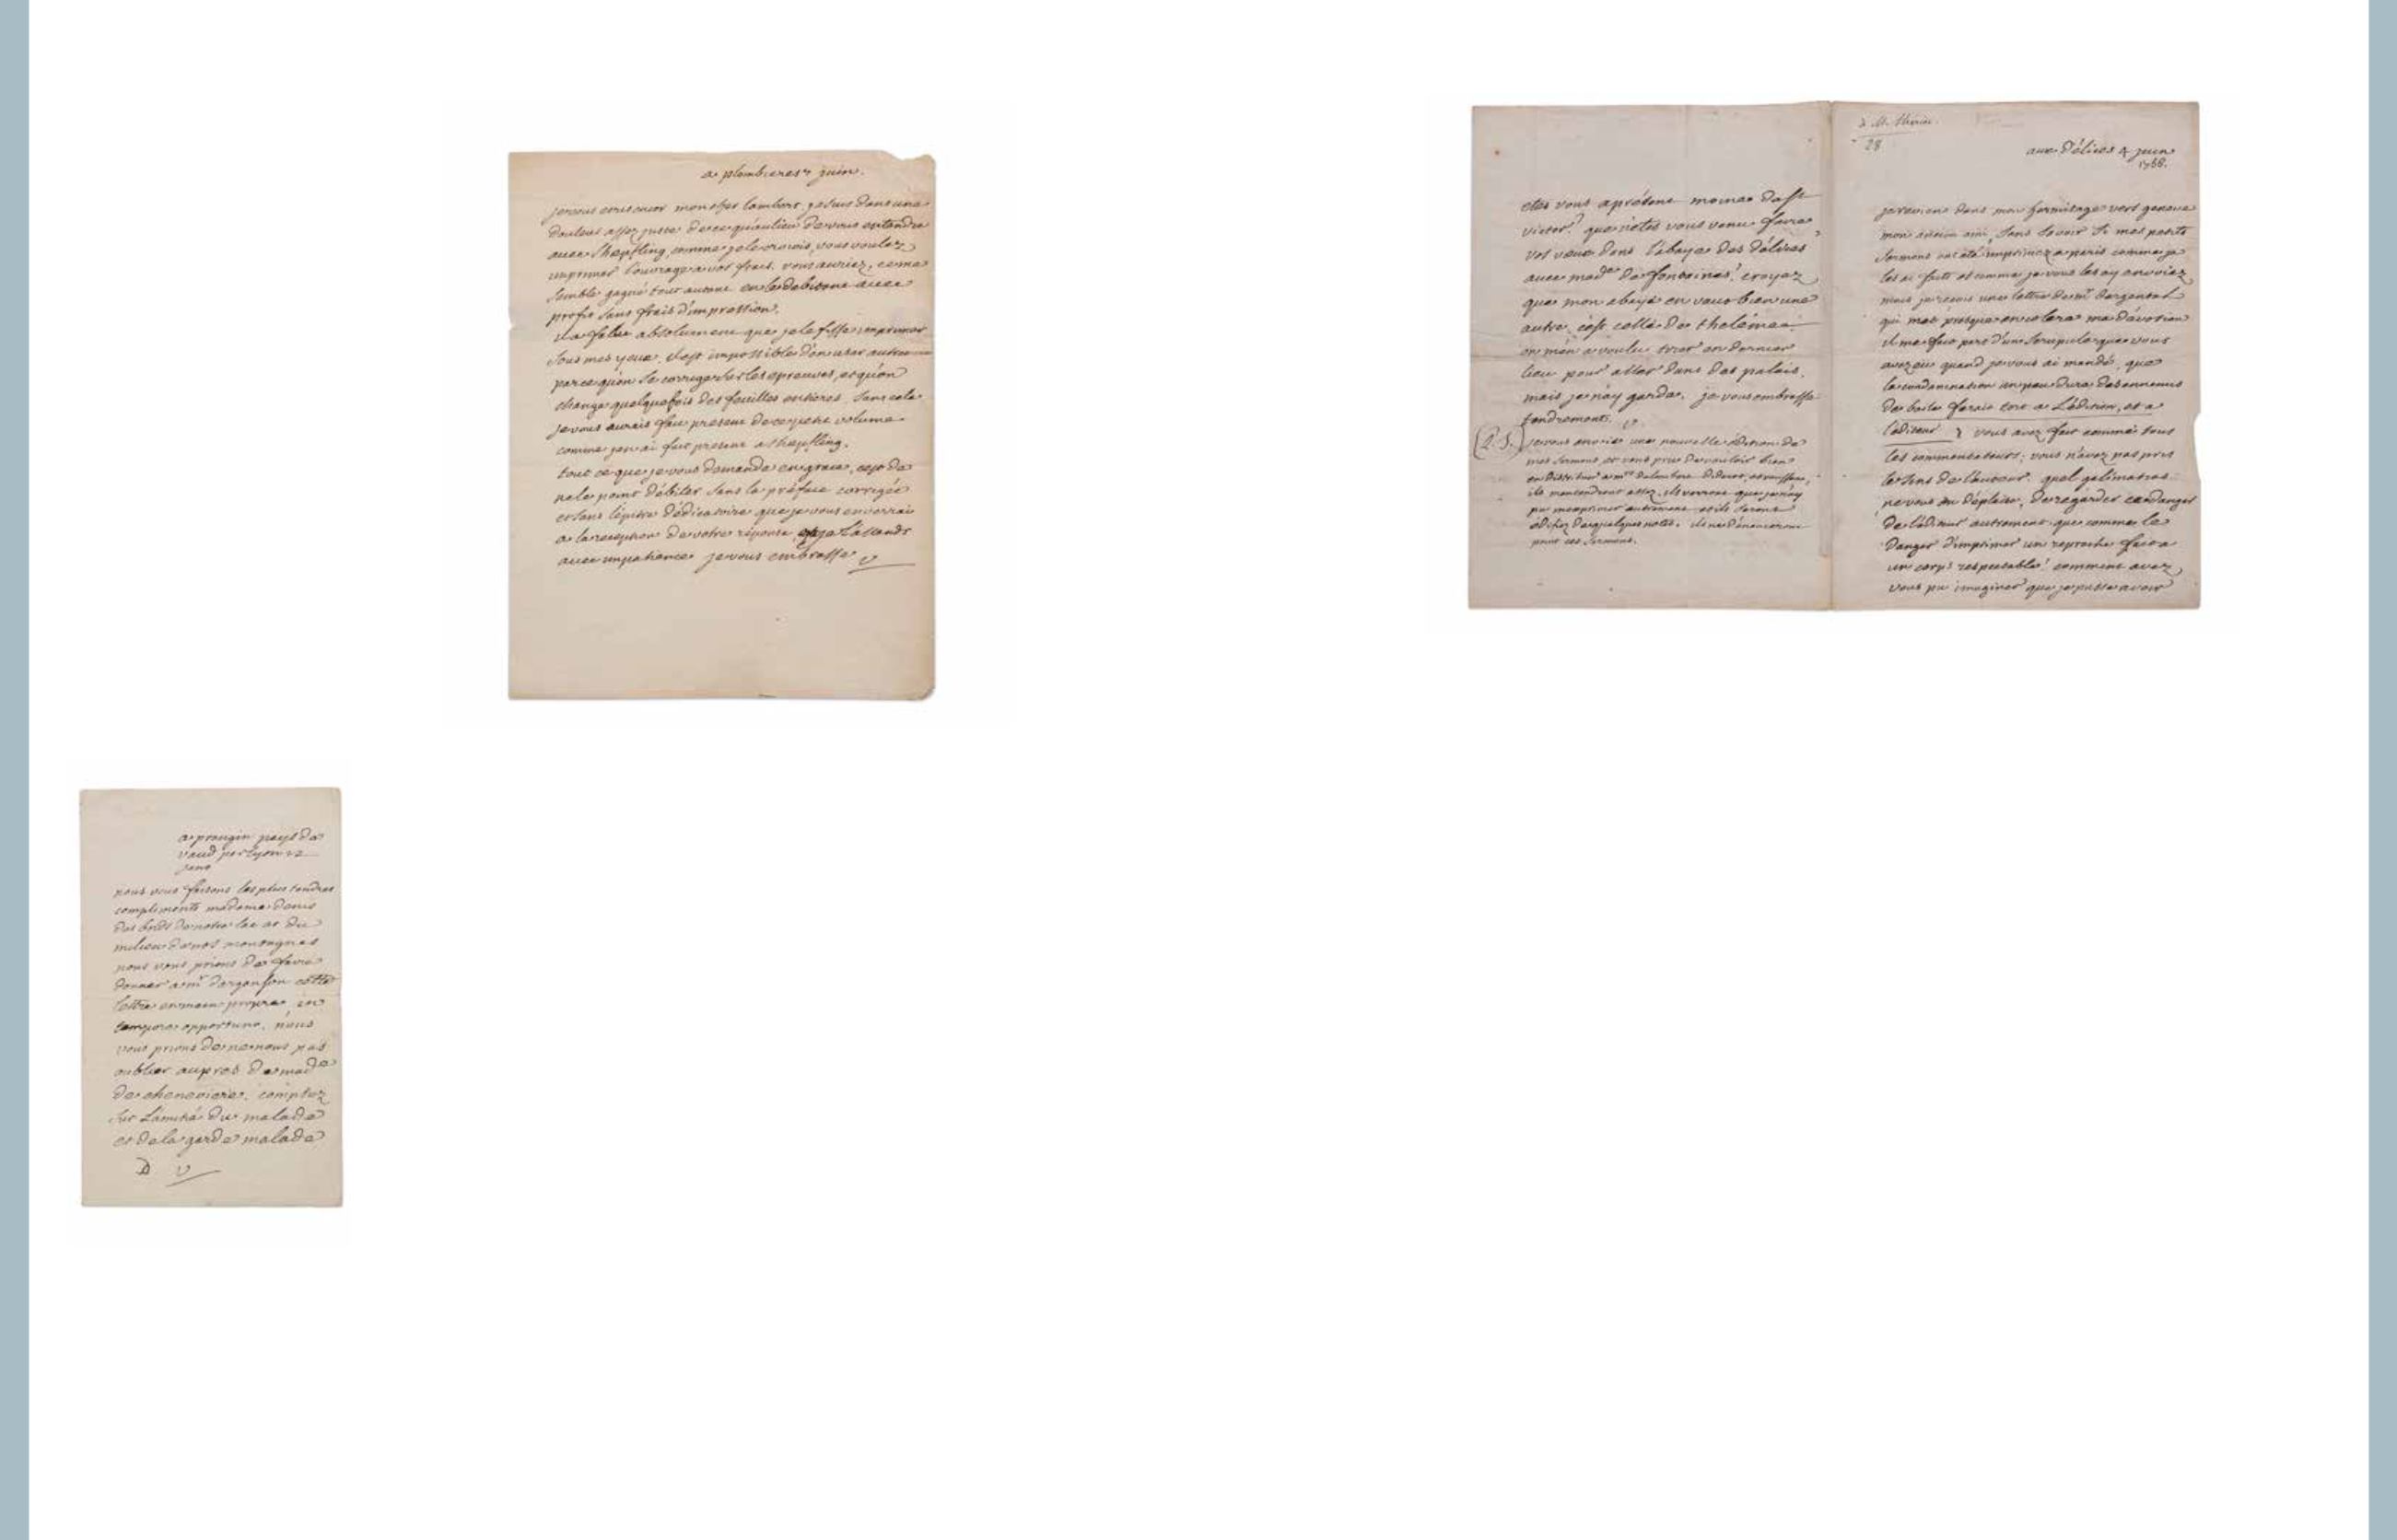 a plombieres 7 juin.
je vous ecris encor mon cher lambert. je suis dans une
douleur assez juste de ce qu'au lieu de vous entendre
avec Shepfling, comme je le croiois, vous voulez
imprimer l'ouvrage a vos frais. vous auriez, ce me
semble gagné tout autant en le debitant avec
profit sans frais d'impression.
il a falu absolument que je le fisse imprimer
sous mes yeux. il est impossible d'en user autrem
parce qu'on se corrige sur les epreuves, et qu'on
change quelquefois des feuilles entieres. sans cela
je vous aurais fait present de ce petit volume
comme j'en ai fait present a Shepfling.
tout ce que je vous demande en grace, c'est de
ne le point débiter sans la préface corrigée
et sans l'épitre dédicatoire que je vous enverrai
a la reception de votre réponse. je l'attends
avec impatience. je vous embrasse V
à M. Thiriot.
28
aux Délices 4 juin
1756.
je reviens dans mon hermitage vers geneve
mon ancien ami, sans savoir si mes petits
sermons ont été imprimez a paris comme je
les ai faits et comme je vous les ay envoiez
mais je reçois une lettre de mr dargental
qui met presque en colere ma dévotion
il me fait part d'un scrupule que vous
avez eu quand je vous ai mandé, que
la condamnation un peu dure des ennemis
de baile ferait tort a L'édition, et a
l'éditeur. vous avez fait comme tous
les commentateurs; vous n'avez pas pris
le sens de l'auteur. quel galimatias
ne vous en déplaise, de regarder ce danger
de l'éditeur autrement que comme le
danger d'imprimer un reproche fait a
un corps respectable! comment avez
vous pu imaginer que je pusse avoir
etes vous a présent moine de st
victor? que n'êtes vous venu faire
vos vœux dans l'abaye des délices
avec made de fontaines? croyez
que mon abaye en vaut bien une
autre. c'est celle de theléme
on m'en a voulu tirer en dernier
lieu pour aller dans des palais.
mais je n'ay garde. je vous embrasse
tendrement. V
(P.S.) je vous envoie une nouvelle édition de
mes sermons et vous prie de vouloir bien
en distribuer a mrs dalembert diderot, et rousseau.
ils m'entendront assez. ils verront que je n'ay
pu m'exprimer autrement et ils seront
édifiez de quelques notes. ils ne dénonceront
point ces sermons.
a prangin pays de
vaud par lyon 22
janv
nous vous faisons les plus tendres
compliments madame denis
des bords de notre lac et du
milieu de nos montagnes
nous vous prions de faire
donner a mr dargenson cette
lettre en main propre in
tempore opportuno. nous
vous prions de ne nous pas
oublier aupres de made
de cheneviere. comptez
sur L'amitié du malade
et de la garde malade
D V